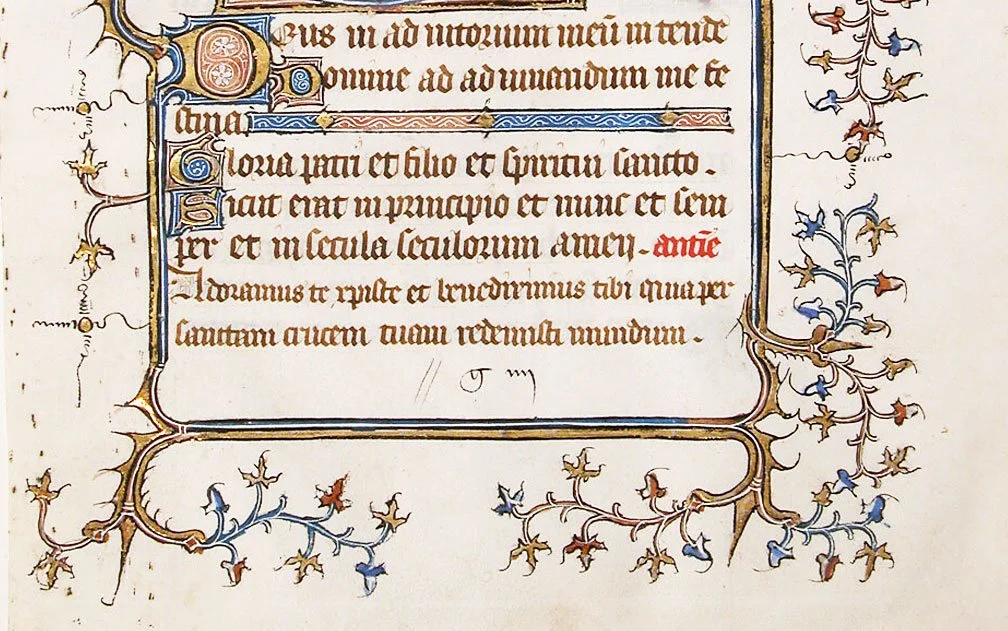 Deus in ad iutorium meū in tende
Domine ad ad iuuandum me fe
stina
Gloria patri et filio et spiritui sancto.
Sicut erat in principio et nunc et sem
per et in secula seculorum amen. antiē
Adoramus te xpiste et benedicimus tibi quia per
sanctam crucem tuam redemisti mundum.
// g iiij